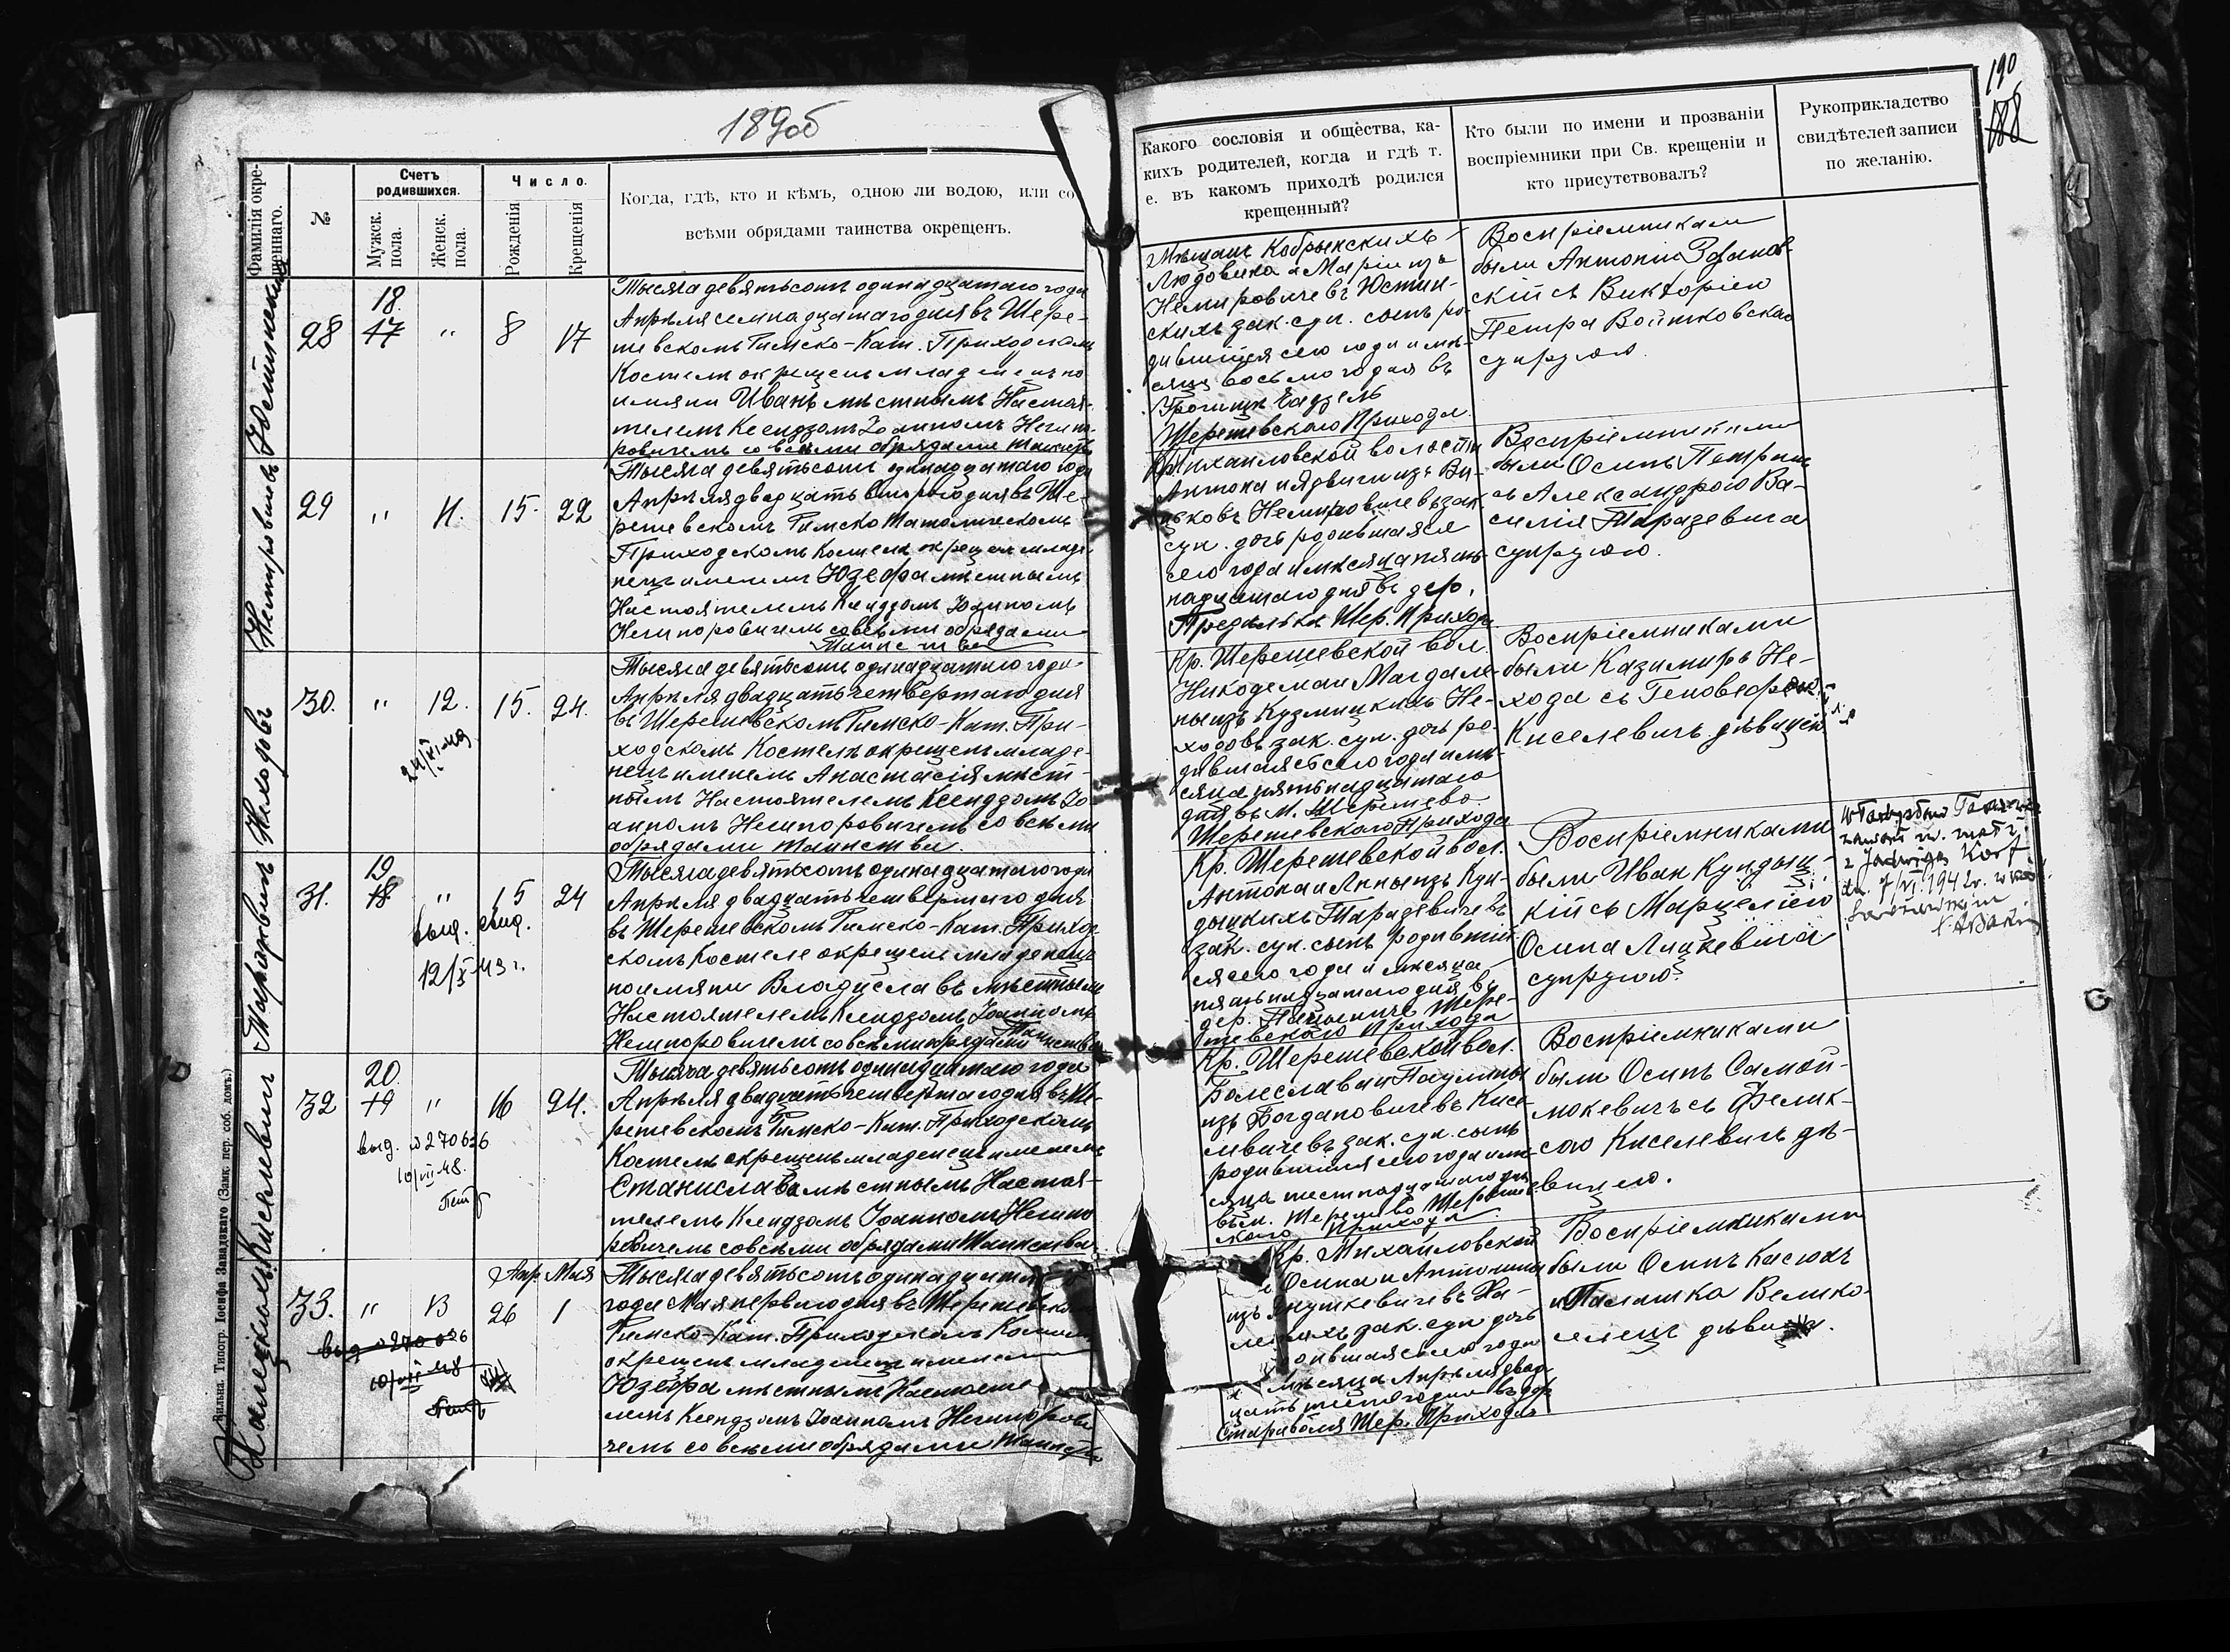 189об
Фамилія окрещеннаго.
№
Счетъ родившихся.
Мужск. пола.
Женск. пола.
Число.
Рожденія
Крещенія
Когда, гдѣ, кто и кѣмъ, одною ли водою, или со
всѣми обрядами таинства окрещенъ.
28
18.
17
"
8
17
Тысяча девятьсотъ одинадцатаго года
Апрѣля семнадцатаго дня въ Шере-
шевскомъ Римско-Кат. Приходскомъ
Костелѣ окрещенъ младенецъ по
имяни Иванъ мѣстнымъ Настоя-
телемъ Ксендзомъ Іоанномъ Нешпо-
ровичемъ со всѣми обрядами таинства
Немировичевъ
29
"
11.
15.
22
Тысяча девятьсотъ одинадцатаго года
Апрѣля двадцать втораго дня въ Ше-
решевскомъ Римско Католическомъ
Приходскомъ Костелѣ окрещен младе-
нецъ именемъ Юзефа мѣстнымъ
Настоятелемъ Ксендзомъ Іоанномъ
Нешпоровичемъ со всѣми обрядами
Таинства
Неходовъ
30.
"
12.
15.
24.
24/XI 43
Тысяча девятьсотъ одинадцатаго года
Апрѣля двадцать четвертаго дня
въ Шерешевскомъ Римско-Кат. При-
ходскомъ Костелѣ окрещенъ младе-
нецъ именемъ Анастасія мѣст-
нымъ Настоятелемъ Ксендзомъ Іо-
анномъ Нешпоровичемъ со всѣми
обрядами таинства.
31.
19
18
"
15
24
выд. выд.
12/X 43 г.
Тысяча девятьсотъ одинадцатаго года
Апрѣля двадцать четвертаго дня
въ Шерешевскомъ Римско-Кат. Приход-
скомъ Костеле окрещенъ младенецъ
по имяни Владиславъ мѣстнымъ
Настоятелемъ Ксендзомъ Іоанномъ
Нешпоровичемъ со всѣми обрядами Таинства
Киселевичъ
32
20.
19
"
16
24.
выд. 270626
10/VII 48.
Тысяча девятьсотъ одинадцатаго года
Апрѣля двадцать четвертаго дня въ Ше-
решевскомъ Римско-Кат. Приходскомъ
Костелѣ окрещенъ младенецъ именемъ
Станиславъ мѣстнымъ Настоя-
телемъ Ксендзомъ Іоанномъ Нешпо
ровичемъ со всѣми обрядами Таинства
33.
"
13
Апр.
26
Мая
1
10/VII 48
Тысяча девятьсотъ одинадцатаго
года Мая перваго дня въ Шерешевском
Римско-Кат. Приходскомъ Костелѣ
окрещенъ младенецъ именемъ
Юзефа мѣстнымъ Настояте
лемъ Ксендзомъ Іоанномъ Нешпорови
чемъ со всѣми обрядами таинства
Вильна. Типогр. Іосифа Завадзкаго (Замк. пер. соб. домъ.)
190
188
Какого сословія и общества, ка-
кихъ родителей, когда и гдѣ т.
е. въ какомъ приходѣ родился
крещенный?
Кто были по имени и прозваніи
воспріемники при Св. крещеніи и
кто присутствовалъ?
Рукоприкладство
свидѣтелей записи
по желанію.
Мѣщанъ Кобрынскихъ
Людовика и Маріи изъ
Немировичевъ Юстин-
скихъ зак. суп. сынъ ро-
дившійся сего года и мѣ-
сяца восьмого дня въ
Шерешевскаго Прихода.
Воспріемниками
были Антоній Зданов-
скій съ Викторіею
Петра Войтковскаго
супругою.
Кр. Михайловской волости
Антона и Ядвиги изъ
Немировичевъ зак.
суп. дочь родившаяся
сего года и мѣсяца пят-
надцатаго дня въ дер.
Шер. Прихода
Воспріемниками
были Осипъ Петрикъ
съ Александрою Ва-
силія Таразевича
супругою.
Кр. Шерешевской вол.
Никодема и Магдале-
ны изъ Кузмицкихъ Не-
ходовъ зак. суп. дочь ро-
дившаяся сего года и мѣ-
сяца пятьнадцатаго
дня въ м. Шерешево
Шерешевскаго Прихода
Воспріемниками
были Казимиръ Не-
хода съ Геновефою
Киселевичъ дѣвицею
Кр. Шерешевской вол.
Антона и Анны изъ Кун-
дыцкихъ Таразевичевъ
зак. суп. сынъ родившій
ся сего года и мѣсяца
пятьнадцатаго дня въ
дер. Шере-
шевскаго Прихода
Воспріемниками
были Иван Кундыц-
кій съ Марцеліею
Осипа Лицкевича
супругою.
Кр. Шерешевской вол.
Болеслава и Паулины
изъ Богдановичевъ Кисе-
левичевъ зак. суп. сынъ
родившійся сего года и мѣ-
сяца шестнадцатаго дня
въ м. Шерешево Шерешев-
скаго Прихода
Воспріемниками
были Осипъ Самой-
локевичъ съ Фелик-
сою Киселевичъ дѣ-
вицею.
Кр. Михайловской
Осипа и Антонины
изъ Янушкевичевъ Ха-
зак. суп. дочь
родившаяся сего года
и мѣсяца Апрѣля двад
цать шестого дня въ дер
Староволя Шер. Прихода
Воспріемниками
были Осипъ Касюкъ
и Палашка Велико-
селецъ дѣвица.